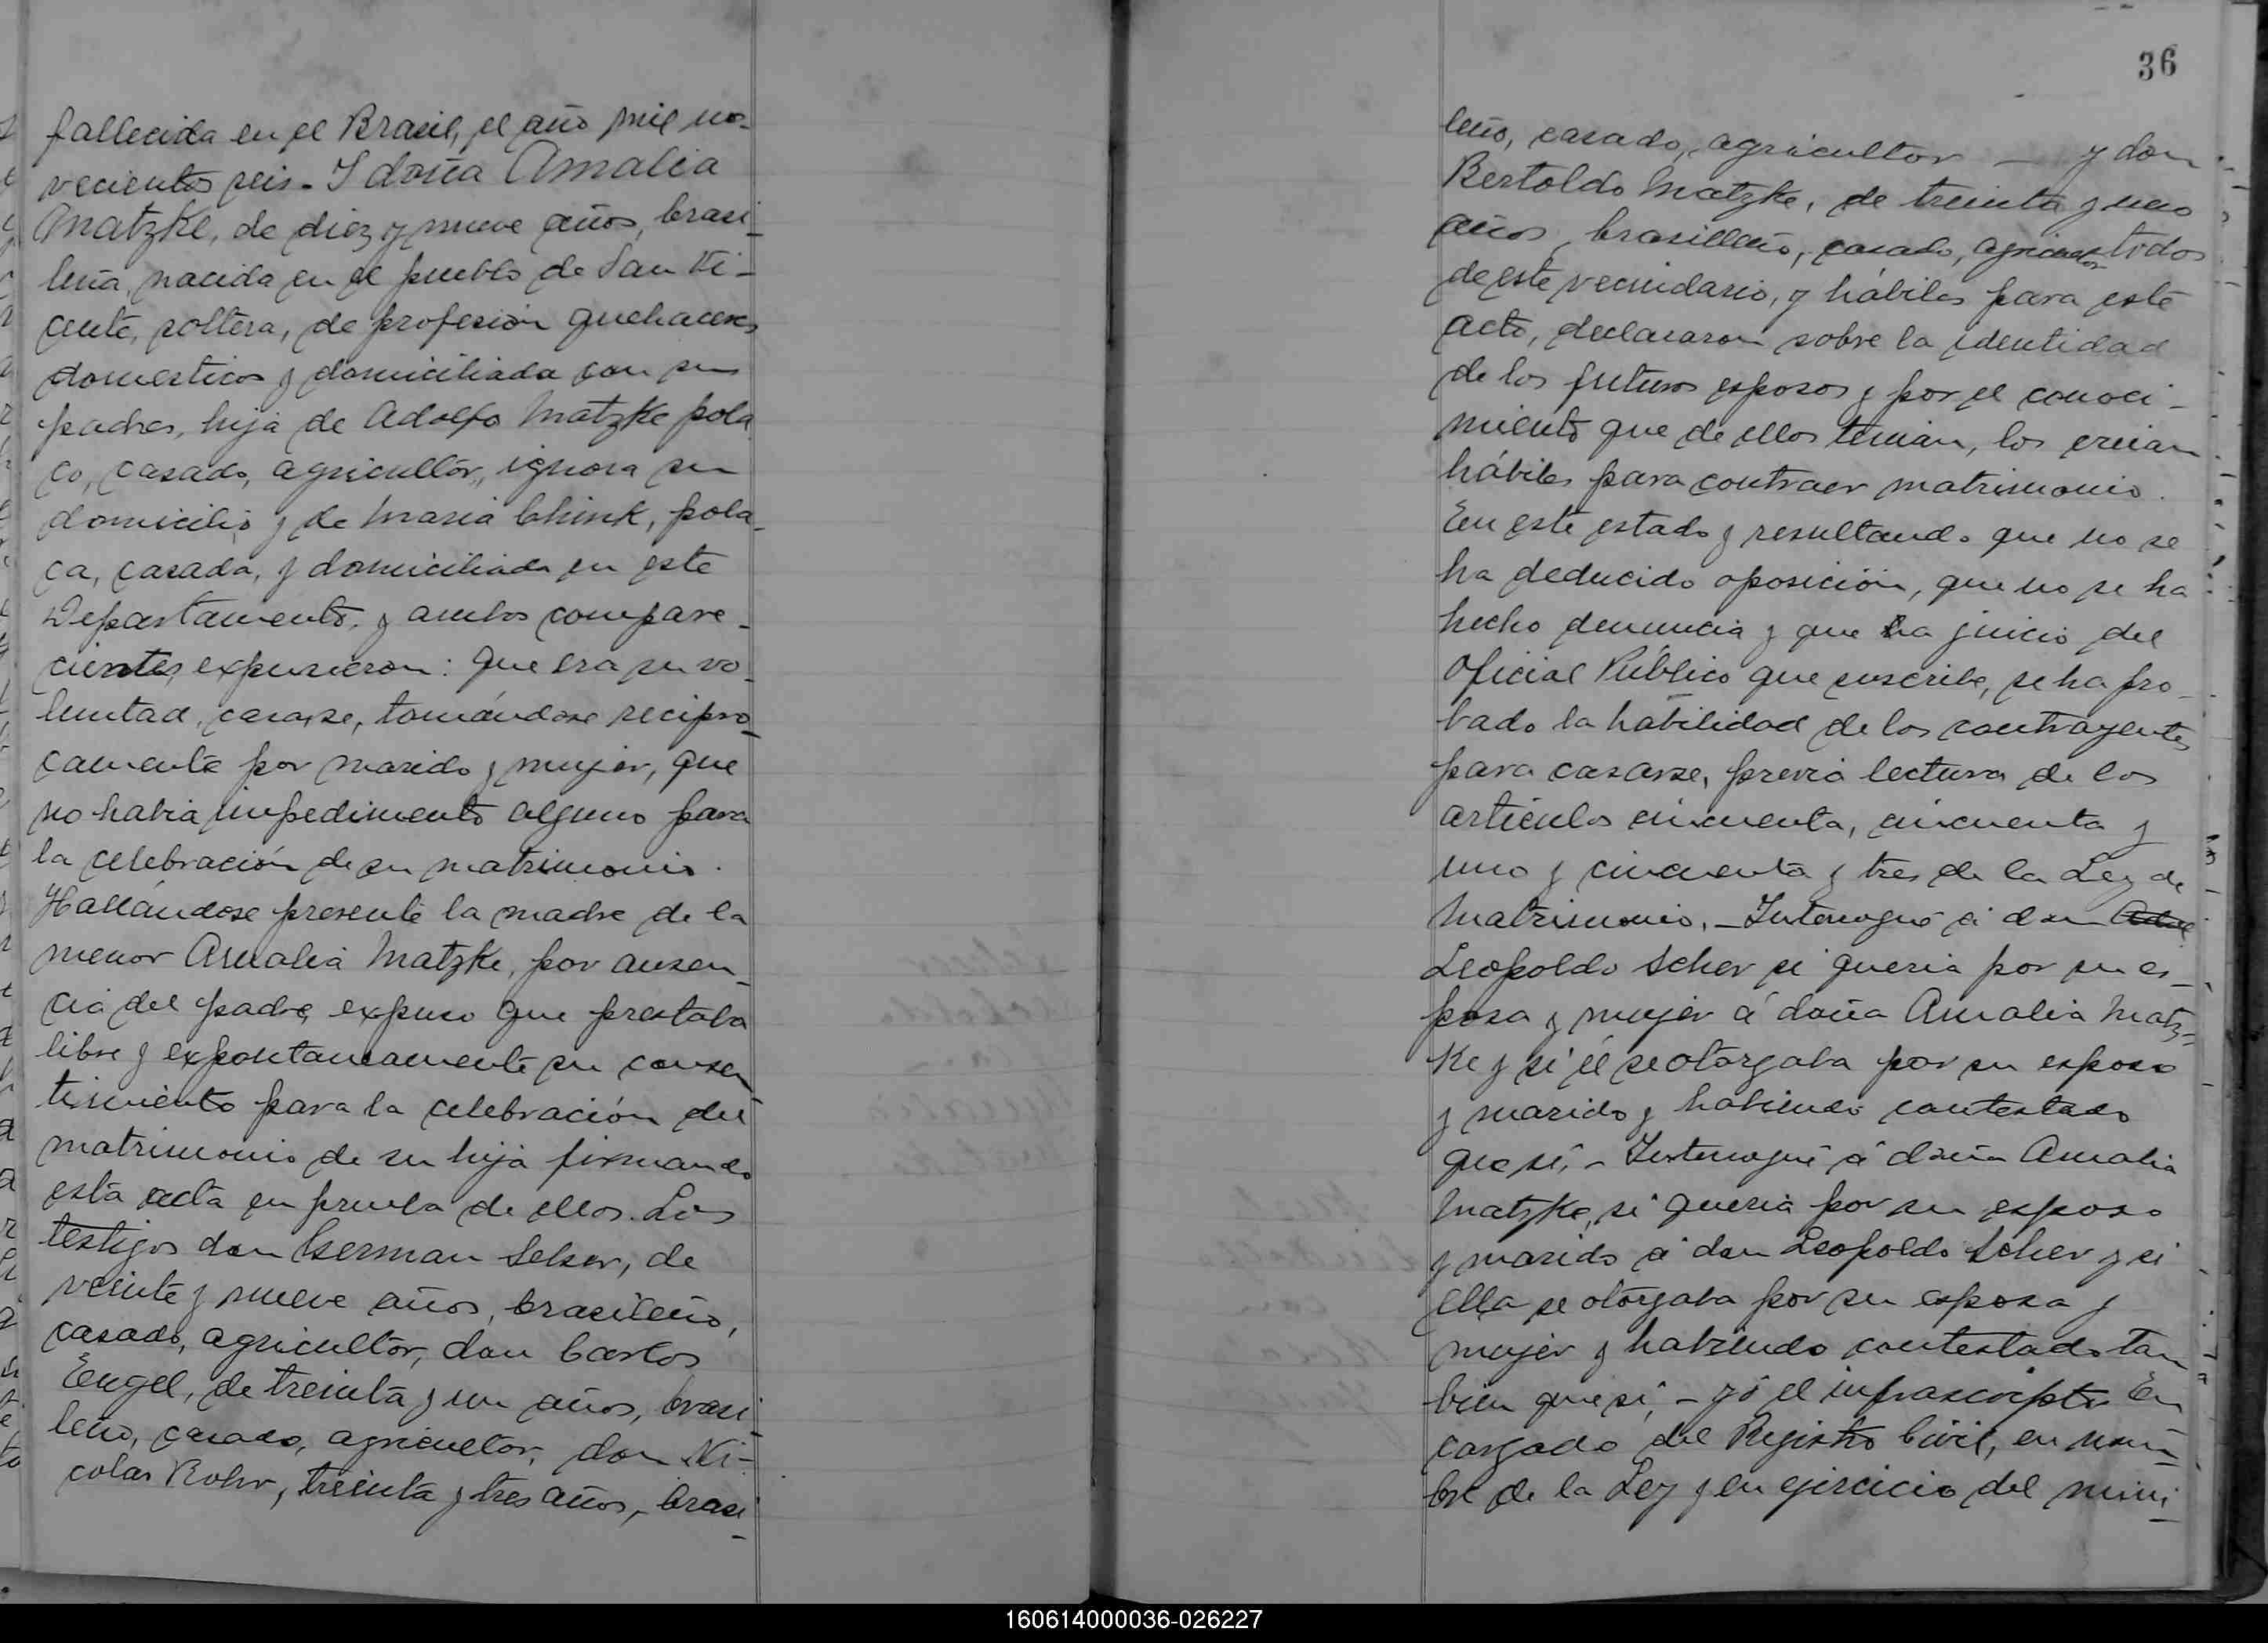 fallecida en el Brasil, el año mil no-
vecientos seis. - I doña Amalia
Matzke, de diez y nueve años, brasi-
leña, nacida en el pueblo de San Vi-
cente, soltera, de profesión quehaceres
domesticos y domiciliada con sus
padres, hija de Adolfo Matzke pola
co, casado, agricultor, ignora su
domicilio y de Maria Chink, pola-
ca, casada, y domiciliada en este
Departamento, y ambos compare-
cientes, expusieron: Que era su vo-
luntad, casarse, tomándose recipro-
camente por marido y mujer, que
no habia impedimento alguno para
la celebración de su matrimonio.
Hallándose presente la madre de la
menor Amalia Matzke, por ausen-
cia del padre, expuso que prestaba
libre y expontaneamente su consen
timiento para la celebración del
matrimonio de su hija firmando
esta acta en prueba de ellos. Los
testigos don German Selser, de
veinte y nueve años, brasileño,
casado, agricultor, don Carlos
Engel, de treinta y un años, brasi-
leño, casado, agricultor, don Ni-
colas Rohr, treinta y tres años, - brasi-
36
leño, casado, agricultor — y don
Bertoldo Matzke, de treinta y uno
años, brasilleño, casado, agricultor todos
de este vecindario, y hábiles para este
acto, declararon sobre la identidad
de los futuros esposos y por el conoci-
miento que de ellos tenian, los creian
hábiles para contraer matrimonio.
En este estado y resultando que no se
ha deducido oposición, que no se ha
hecho denuncia y que a juicio del
Oficial Público que suscribe, se ha pro-
bado la habilidad de los contrayentes
para casarse, previa lectura de los
articulos cincuenta, cincuenta y
uno y cincuenta y tres de la Ley de
Matrimonio. - Interrogué á don
Leopoldo Scher si queria por su es-
posa y mujer á doña Amalia Matz-
ke y si él se otorgaba por su esposo
y marido y habiendo contestado
que sí, - Interrogué á doña Amalia
Matzke, si queria por su esposo
y marido á don Leopoldo Scher y si
ella se otorgaba por su esposa y
mujer y habiendo contestado tam
bien que sí, - yó el infrascripto En
cargado del Registro Civil, en nom-
bre de la Ley y en ejercicio del mini-
160614000036-026227